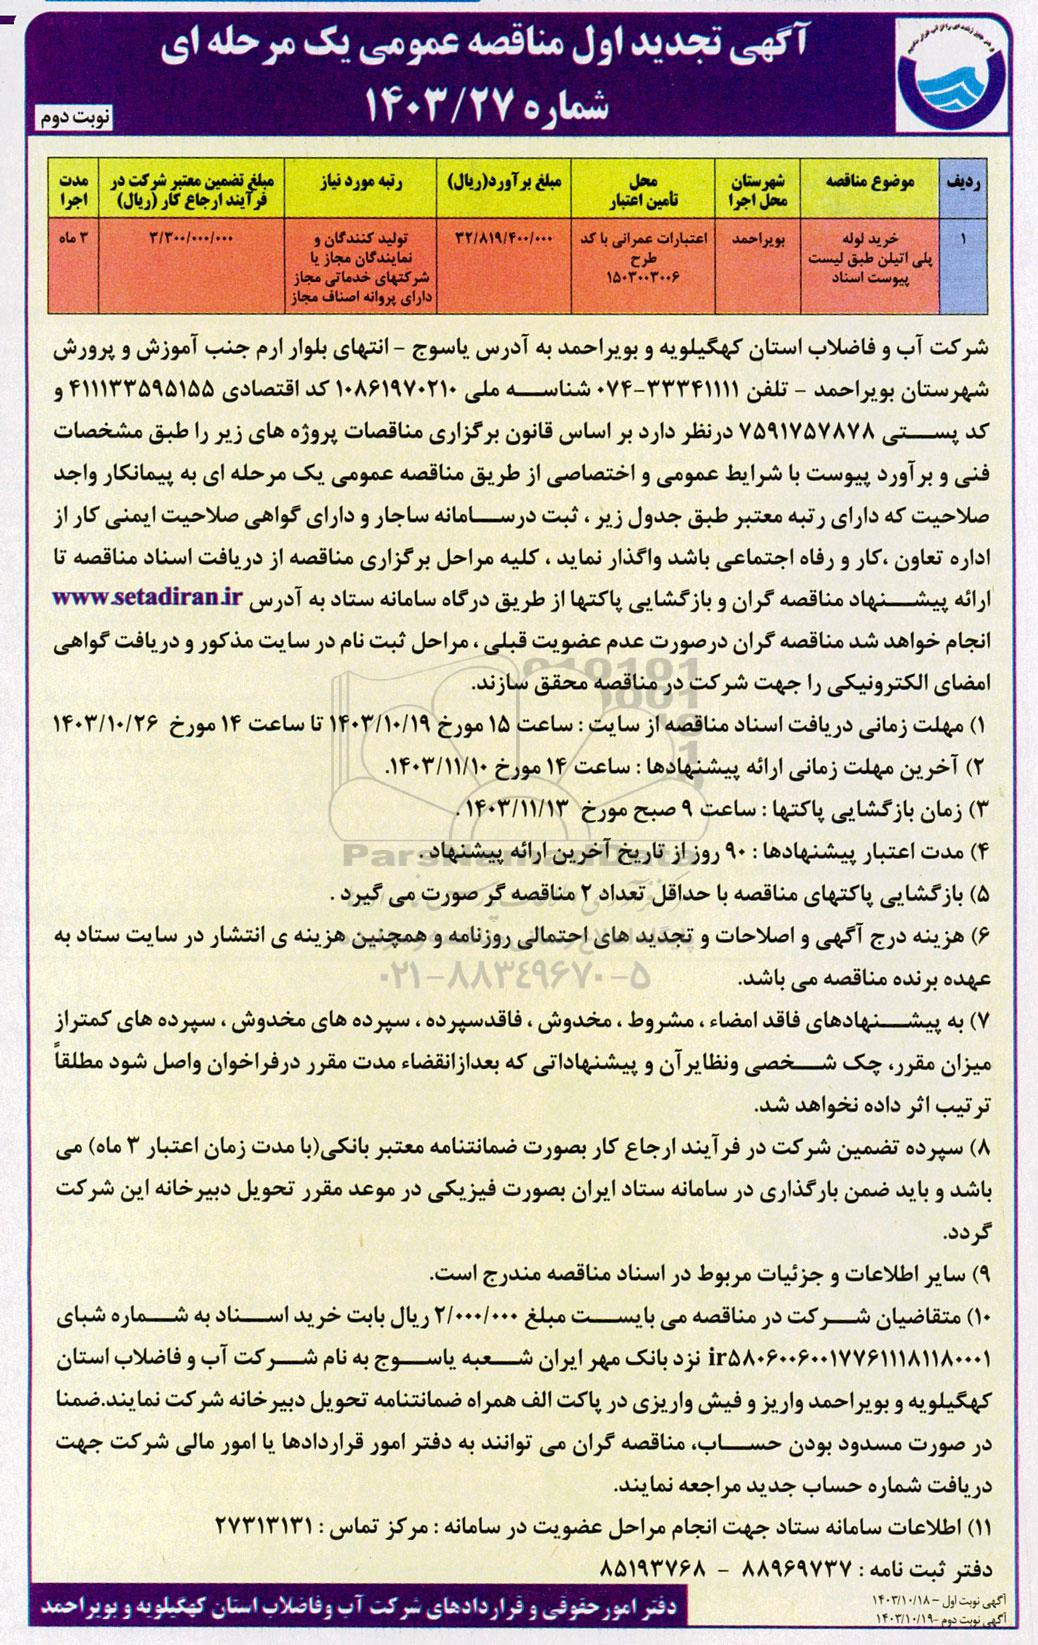 آگهی تجدید اول مناقصه عمومی یک مرحله ای
شماره ۱۴۰۳/۲۷
نوبت دوم
ردیف
موضوع مناقصه
شهرستان
محل اجرا
محل
تأمین اعتبار
مبلغ برآورد(ریال)
رتبه مورد نیاز
مبلغ تضمین معتبر شرکت در
فرآیند ارجاع کار (ریال)
مدت
اجرا
۱
خرید لوله
پلی اتیلن طبق لیست
پیوست اسناد
بویراحمد
اعتبارات عمرانی با کد
طرح
۱۵۰۳۰۰۳۰۰۶
۳۲/۸۱۹/۴۰۰/۰۰۰
تولید کنندگان و
نمایندگان مجاز یا
شرکتهای خدماتی مجاز
دارای پروانه اصناف مجاز
۳/۳۰۰/۰۰۰/۰۰۰
۳ ماه
شرکت آب و فاضلاب استان کهگیلویه و بویراحمد به آدرس یاسوج - انتهای بلوار ارم جنب آموزش و پرورش
شهرستان بویراحمد - تلفن ۳۳۳۴۱۱۱۱-۰۷۴ شناسه ملی ۱۰۸۶۱۹۷۰۲۱۰ کد اقتصادی ۴۱۱۱۳۳۵۹۵۱۵۵ و
کد پستی ۷۵۹۱۷۵۷۸۷۸ درنظر دارد بر اساس قانون برگزاری مناقصات پروژه های زیر را طبق مشخصات
فنی و برآورد پیوست با شرایط عمومی و اختصاصی از طریق مناقصه عمومی یک مرحله ای به پیمانکار واجد
صلاحیت که دارای رتبه معتبر طبق جدول زیر ، ثبت درسامانه ساجار و دارای گواهی صلاحیت ایمنی کار از
اداره تعاون ،کار و رفاه اجتماعی باشد واگذار نماید ، کلیه مراحل برگزاری مناقصه از دریافت اسناد مناقصه تا
ارائه پیشنهاد مناقصه گران و بازگشایی پاکتها از طریق درگاه سامانه ستاد به آدرس www.setadiran.ir
انجام خواهد شد مناقصه گران درصورت عدم عضویت قبلی ، مراحل ثبت نام در سایت مذکور و دریافت گواهی
امضای الکترونیکی را جهت شرکت در مناقصه محقق سازند.
۱) مهلت زمانی دریافت اسناد مناقصه از سایت : ساعت ۱۵ مورخ ۱۴۰۳/۱۰/۱۹ تا ساعت ۱۴ مورخ ۱۴۰۳/۱۰/۲۶
۲) آخرین مهلت زمانی ارائه پیشنهادها : ساعت ۱۴ مورخ ۱۴۰۳/۱۱/۱۰.
۳) زمان بازگشایی پاکتها : ساعت ۹ صبح مورخ ۱۴۰۳/۱۱/۱۳ .
۴) مدت اعتبار پیشنهادها : ۹۰ روز از تاریخ آخرین ارائه پیشنهاد .
۵) بازگشایی پاکتهای مناقصه با حداقل تعداد ۲ مناقصه گر صورت می گیرد .
۶) هزینه درج آگهی و اصلاحات و تجدید های احتمالی روزنامه و همچنین هزینه ی انتشار در سایت ستاد به
عهده برنده مناقصه می باشد.
۰۲۱-۸۸۳۴۹۶۷۰-۵
۷) به پیشنهادهای فاقد امضاء ، مشروط ، مخدوش ، فاقدسپرده ، سپرده های مخدوش ، سپرده های کمتراز
میزان مقرر، چک شخصی ونظایرآن و پیشنهاداتی که بعدازانقضاء مدت مقرر درفراخوان واصل شود مطلقاً
ترتیب اثر داده نخواهد شد.
۸) سپرده تضمین شرکت در فرآیند ارجاع کار بصورت ضمانتنامه معتبر بانکی(با مدت زمان اعتبار ۳ ماه) می
باشد و باید ضمن بارگذاری در سامانه ستاد ایران بصورت فیزیکی در موعد مقرر تحویل دبیرخانه این شرکت
گردد.
۹) سایر اطلاعات و جزئیات مربوط در اسناد مناقصه مندرج است.
۱۰) متقاضیان شرکت در مناقصه می بایست مبلغ ۲/۰۰۰/۰۰۰ ریال بابت خرید اسناد به شماره شبای
ir۵۸۰۶۰۰۶۰۰۱۷۷۶۱۱۱۸۱۱۸۰۰۰۱ نزد بانک مهر ایران شعبه یاسوج به نام شرکت آب و فاضلاب استان
کهگیلویه و بویراحمد واریز و فیش واریزی در پاکت الف همراه ضمانتنامه تحویل دبیرخانه شرکت نمایند.ضمنا
در صورت مسدود بودن حساب، مناقصه گران می توانند به دفتر امور قراردادها یا امور مالی شرکت جهت
دریافت شماره حساب جدید مراجعه نمایند.
۱۱) اطلاعات سامانه ستاد جهت انجام مراحل عضویت در سامانه : مرکز تماس : ۲۷۳۱۳۱۳۱
دفتر ثبت نامه : ۸۸۹۶۹۷۳۷ - ۸۵۱۹۳۷۶۸
آگهی نوبت اول - ۱۴۰۳/۱۰/۱۸
آگهی نوبت دوم -۱۴۰۳/۱۰/۱۹
دفتر امور حقوقی و قراردادهای شرکت آب و فاضلاب استان کهگیلویه و بویراحمد